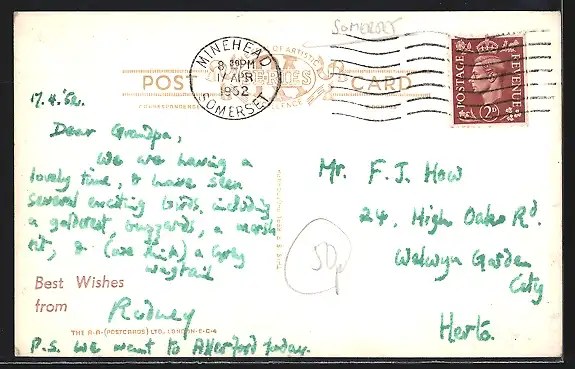 SOMERSET
MINEHEAD
8.30PM
17 APR
1952
SOMERSET
POST CARD
SERIES
POSTAGE REVENUE
2D
17.4.52.
Dear Grandpa,
We are having a
lovely time, & have seen
several exciting birds, including
a goldcrest, buzzards, a marsh
tit, & (we think) a Grey
wagtail
Best Wishes
from
Rodney
THE R.A. (POSTCARDS) LTD. LONDON-E-C-4
P.S. We went to Allerford today.
Mr. F. J. How
24, High Oaks Rd.
Welwyn Garden
City
Herts.
50p